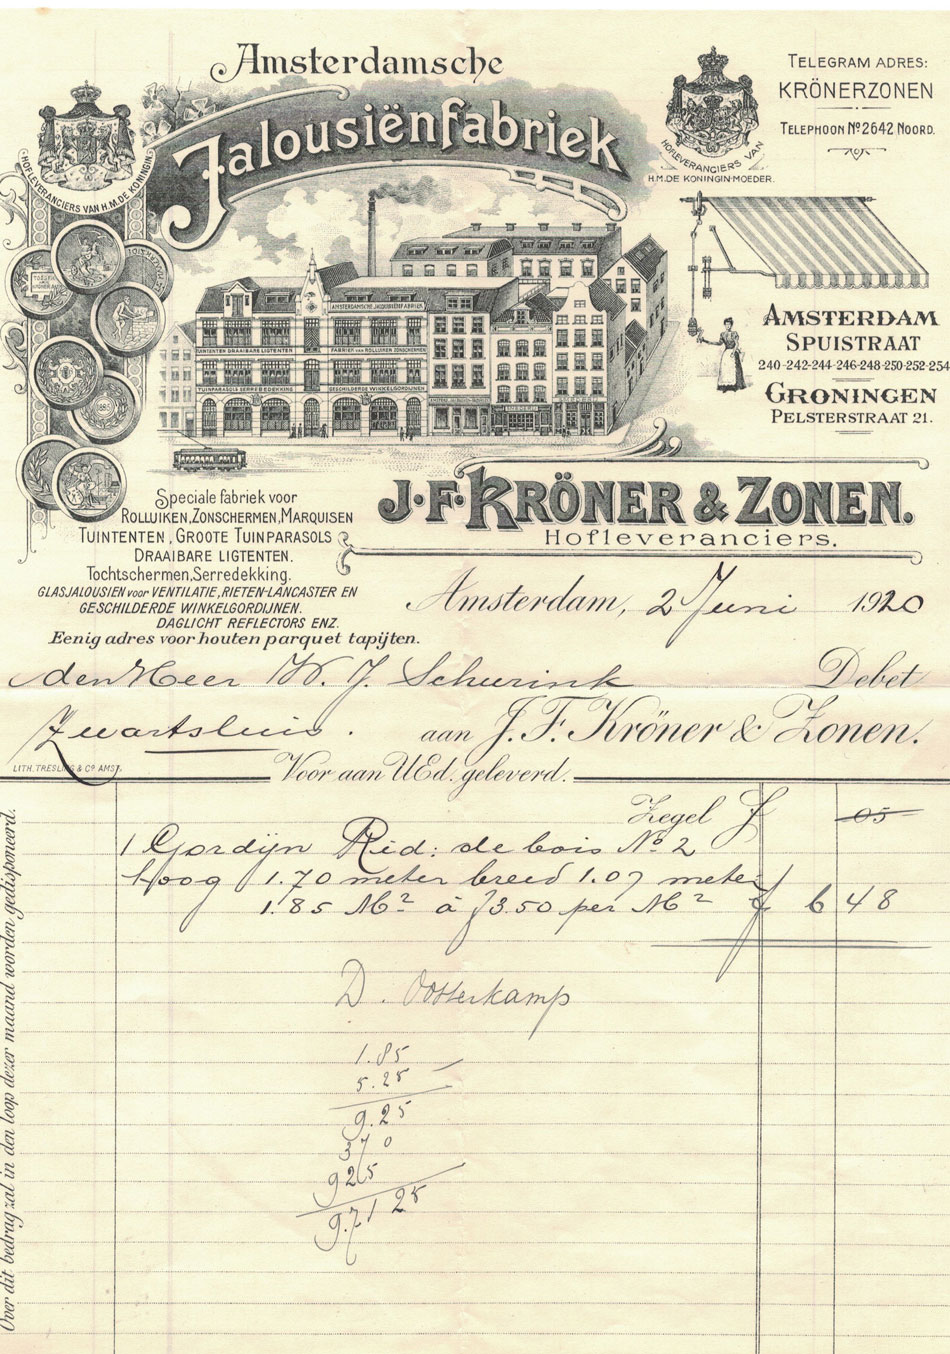 Amsterdamsche
Jalousiënfabriek
HOFLEVERANCIERS VAN H.M. DE KONINGIN.
HOFLEVERANCIERS VAN
H.M. DE KONINGIN-MOEDER.
TELEGRAM ADRES:
KRÖNERZONEN
TELEPHOON No 2642 NOORD.
AMSTERDAMSCHE JALOUSIËNFABRIEK
TUINTENTEN DRAAIBARE LIGTENTEN
FABRIEK VAN ROLLUIKEN ZONSCHERMEN
TUINPARASOLS SERREDEKKING
GESCHILDERDE WINKELGORDIJNEN
AMSTERDAM
SPUISTRAAT
240-242-244-246-248-250-252-254
GRONINGEN
PELSTERSTRAAT 21.
J. F. KRÖNER & ZONEN.
Hofleveranciers.
Speciale fabriek voor
ROLLUIKEN, ZONSCHERMEN, MARQUISEN
TUINTENTEN, GROOTE TUINPARASOLS
DRAAIBARE LIGTENTEN.
Tochtschermen, Serredekking.
GLASJALOUSIEN voor VENTILATIE, RIETEN-LANCASTER EN
GESCHILDERDE WINKELGORDIJNEN.
DAGLICHT REFLECTORS ENZ.
Eenig adres voor houten parquet tapijten.
Amsterdam, 2 Juni 1920
den Heer W. J. Schurink Debet
Zwartsluis. aan J. F. Kröner & Zonen.
LITH. TRESLING & Co. AMST.
Voor aan UEd. geleverd.
Zegel f 05
1 Gordijn Rid: de bois No 2
hoog 1.70 meter breed 1.07 meter
1.85 M2 à f 3.50 per M2 f 6 48
D. Oosterkamp
1.85
5.25
9.25
370
925
9.7125
Over dit bedrag zal in den loop dezer maand worden gedisponeerd.